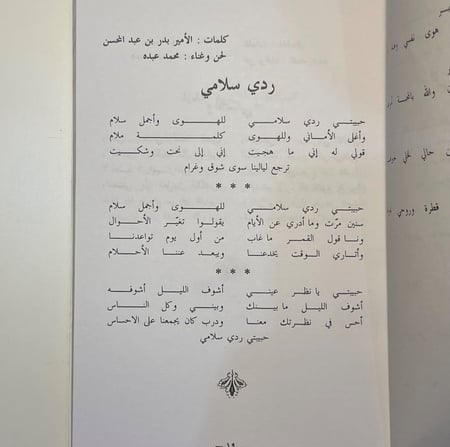 كلمات : الأمير بدر بن عبد المحسن
لحن وغناء : محمد عبده
ردي سلامي
حبيبتي ردي سلامي للهوى وأجمل سلام
وأغلى الأماني وللهوى كلمة ملام
قولي له إني ما هجيت إني إلى نحت وشكيت
ترجع ليالينا سوى شوق وغرام
* * *
حبيبتي ردي سلامي للهوى وأجمل سلام
سنين مرّت وما أدري عن الأيام يقولوا تغيّر الأحوال
ونا قول القمر ما غاب من أول يوم تواعدنا
وأتاري الوقت يخدعنا ويبعد عننا الأحلام
* * *
حبيبتي يا نظر عيني أشوف الليل أشوفه
أشوف الليل ما بينك وبيني وكل الناس
أحس في نظرتك معنا ودرب كان يجمعنا على الاحساس
حبيبتي ردي سلامي
— ١٩ —
هوى نفسي
والله
حالي
قطرة وروحي